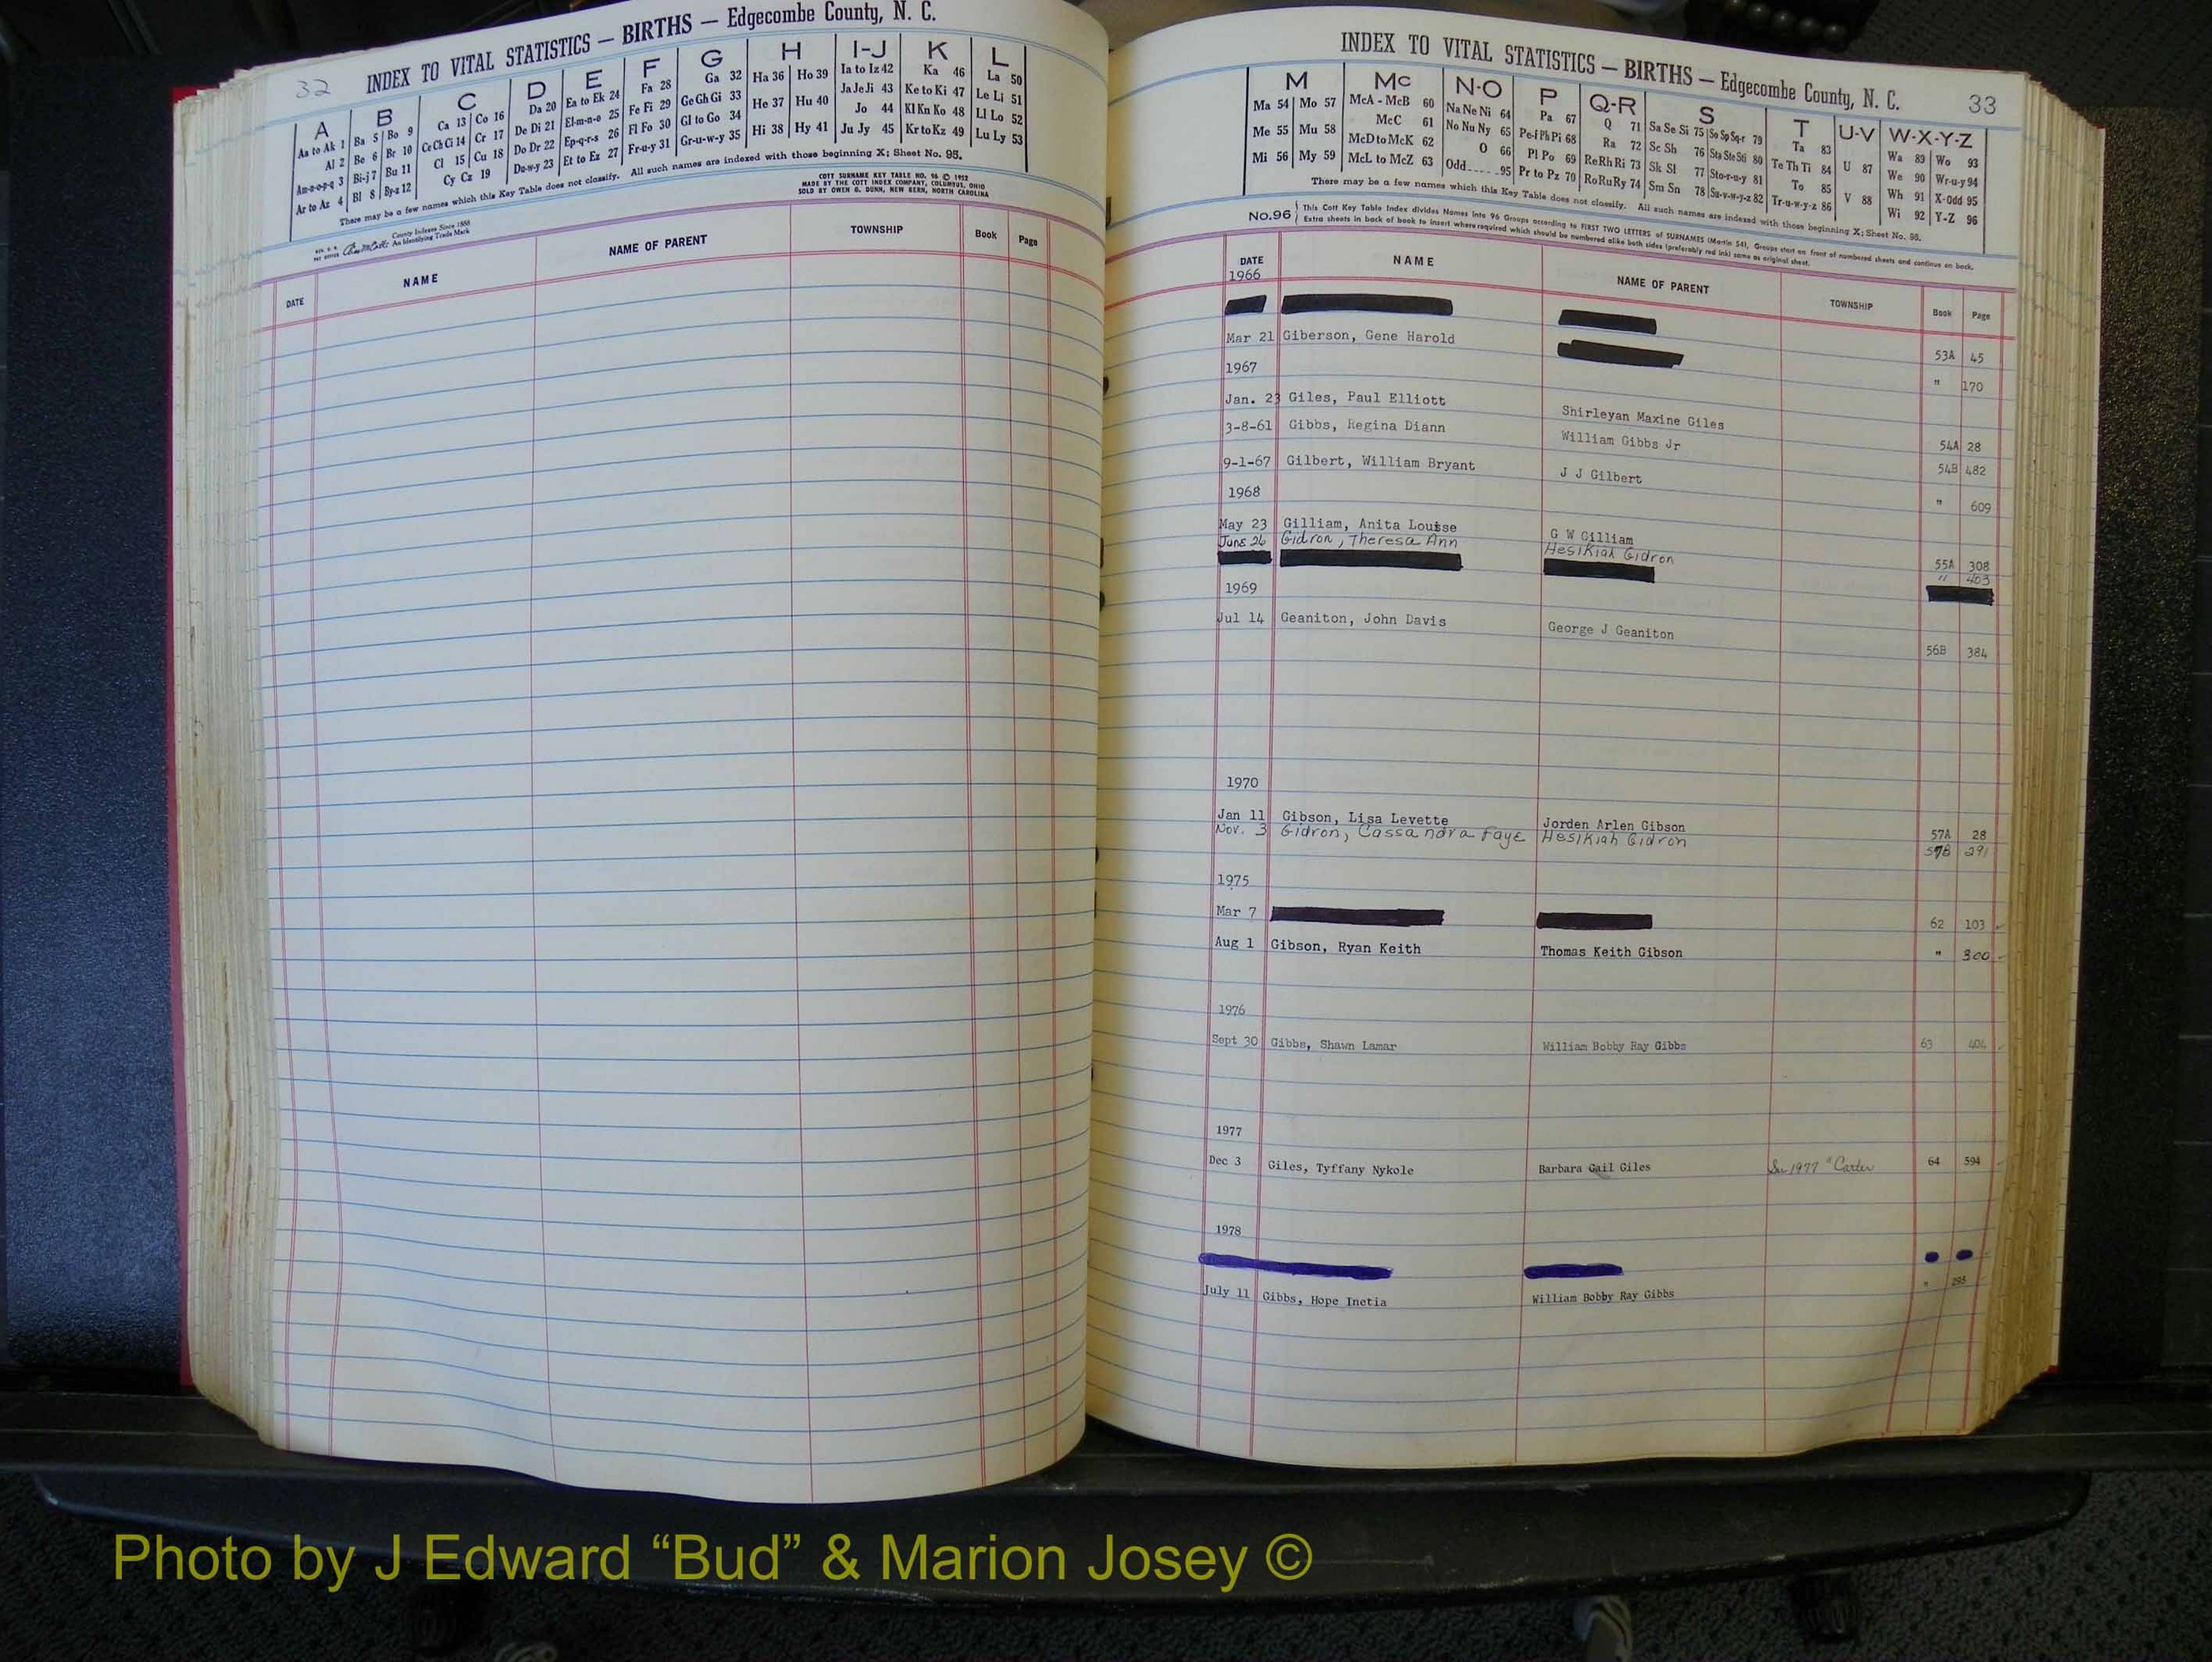 32
INDEX TO VITAL STATISTICS — BIRTHS — Edgecombe County, N. C.
A B C D E F G H I-J K L
Aa to Ak 1 Ba 5 Bo 9 Ca 13 Co 16 Da 20 Ea to Ek 24 Fa 28 Ga 32 Ha 36 Ho 39 Ia to Iz 42 Ka 46 La 50
Al 2 Be 6 Br 10 Ce Ch Ci 14 Cr 17 De Di 21 El-m-n-o 25 Fe Fi 29 Ge Gh Gi 33 He 37 Hu 40 Ja Je Ji 43 Ke to Ki 47 Le Li 51
Am-n-o-p-q 3 Bi-j 7 Bu 11 Cl 15 Cu 18 Do Dr 22 Ep-q-r-s 26 Fl Fo 30 Gl to Go 34 Hi 38 Hy 41 Jo 44 Kl Kn Ko 48 Ll Lo 52
Ar to Az 4 Bl 8 By-z 12 Cy Cz 19 Du-w-y 23 Et to Ez 27 Fr-u-y 31 Gr-u-w-y 35 Ju Jy 45 Kr to Kz 49 Lu Ly 53
There may be a few names which this Key Table does not classify. All such names are indexed with those beginning X; Sheet No. 95.
COTT SURNAME KEY TABLE NO. 96 © 1952
MADE BY THE COTT INDEX COMPANY, COLUMBUS, OHIO
SOLD BY OWEN G. DUNN, NEW BERN, NORTH CAROLINA
County Indexes Since 1888
An Identifying Trade Mark
DATE NAME NAME OF PARENT TOWNSHIP Book Page
INDEX TO VITAL STATISTICS — BIRTHS — Edgecombe County, N. C. 33
M Mc N-O P Q-R S T U-V W-X-Y-Z
Ma 54 Mo 57 McA - McB 60 Na Ne Ni 64 Pa 67 Q 71 Sa Se Si 75 So Sp Sq-r 79 Ta 83 U 87 Wa 89 Wo 93
Me 55 Mu 58 McC 61 No Nu Ny 65 Pe-f Ph Pi 68 Ra 72 Sc Sh 76 Sta Ste Sti 80 Te Th Ti 84 V 88 We 90 Wr-u-y 94
Mi 56 My 59 McD to McK 62 O 66 Pl Po 69 Re Rh Ri 73 Sk Sl 77 Sto-r-u-y 81 To 85 Wh 91 X-Odd 95
McL to McZ 63 Odd 95 Pr to Pz 70 Ro Ru Ry 74 Sm Sn 78 Su-v-w-y-z 82 Tr-u-w-y-z 86 Wi 92 Y-Z 96
There may be a few names which this Key Table does not classify. All such names are indexed with those beginning X; Sheet No. 95.
No.96 This Cott Key Table Index divides Names into 96 Groups according to FIRST TWO LETTERS of SURNAMES (Martin 54), Groups start on front of numbered sheets and continue on back.
Extra sheets in back of book to insert where required which should be numbered alike both sides (preferably red ink) same as original sheet.
DATE NAME NAME OF PARENT TOWNSHIP Book Page
1966
53A 45
Mar 21 Giberson, Gene Harold " 170
1967
Jan. 23 Giles, Paul Elliott Shirleyan Maxine Giles 54A 28
3-8-61 Gibbs, Regina Diann William Gibbs Jr 54B 482
9-1-67 Gilbert, William Bryant J J Gilbert " 609
1968
May 23 Gilliam, Anita Louise G W Gilliam 55A 308
June 26 Gidron, Theresa Ann Hesikiah Gidron " 403
1969
Jul 14 Geaniton, John Davis George J Geaniton 56B 384
1970
Jan 11 Gibson, Lisa Levette Jorden Arlen Gibson 57A 28
Nov. 3 Gidron, Cassandra Faye Hesikiah Gidron 57B 291
1975
Mar 7 62 103
Aug 1 Gibson, Ryan Keith Thomas Keith Gibson " 300
1976
Sept 30 Gibbs, Shawn Lamar William Bobby Ray Gibbs 63 404
1977
Dec 3 Giles, Tyffany Nykole Barbara Gail Giles See 1977 "Carter 64 594
1978
July 11 Gibbs, Hope Inetia William Bobby Ray Gibbs " 285
Photo by J Edward “Bud” & Marion Josey ©